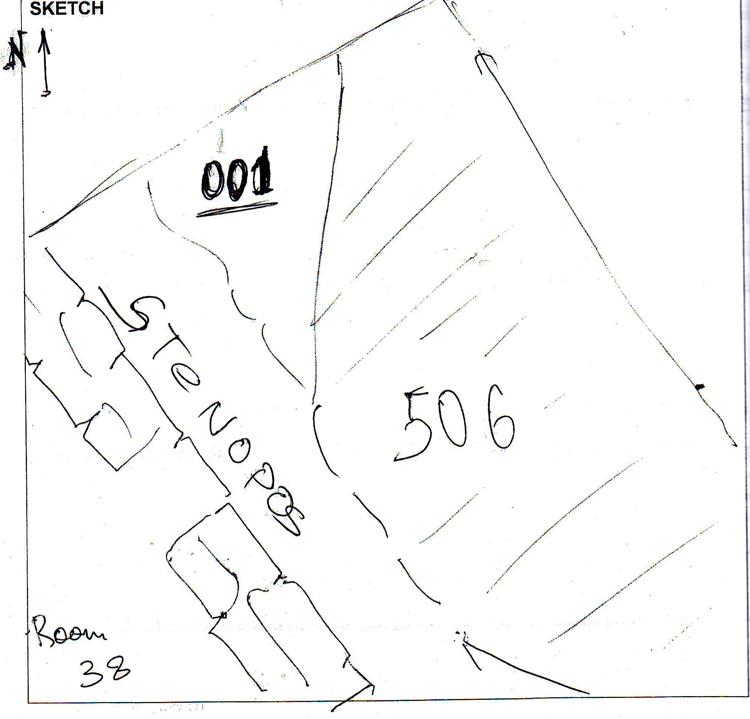 SKETCH
N
001
STENOPOS
506
Room
38